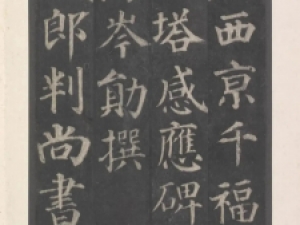 西亰千福
塔感應碑
岑勛撰
郎判尚書